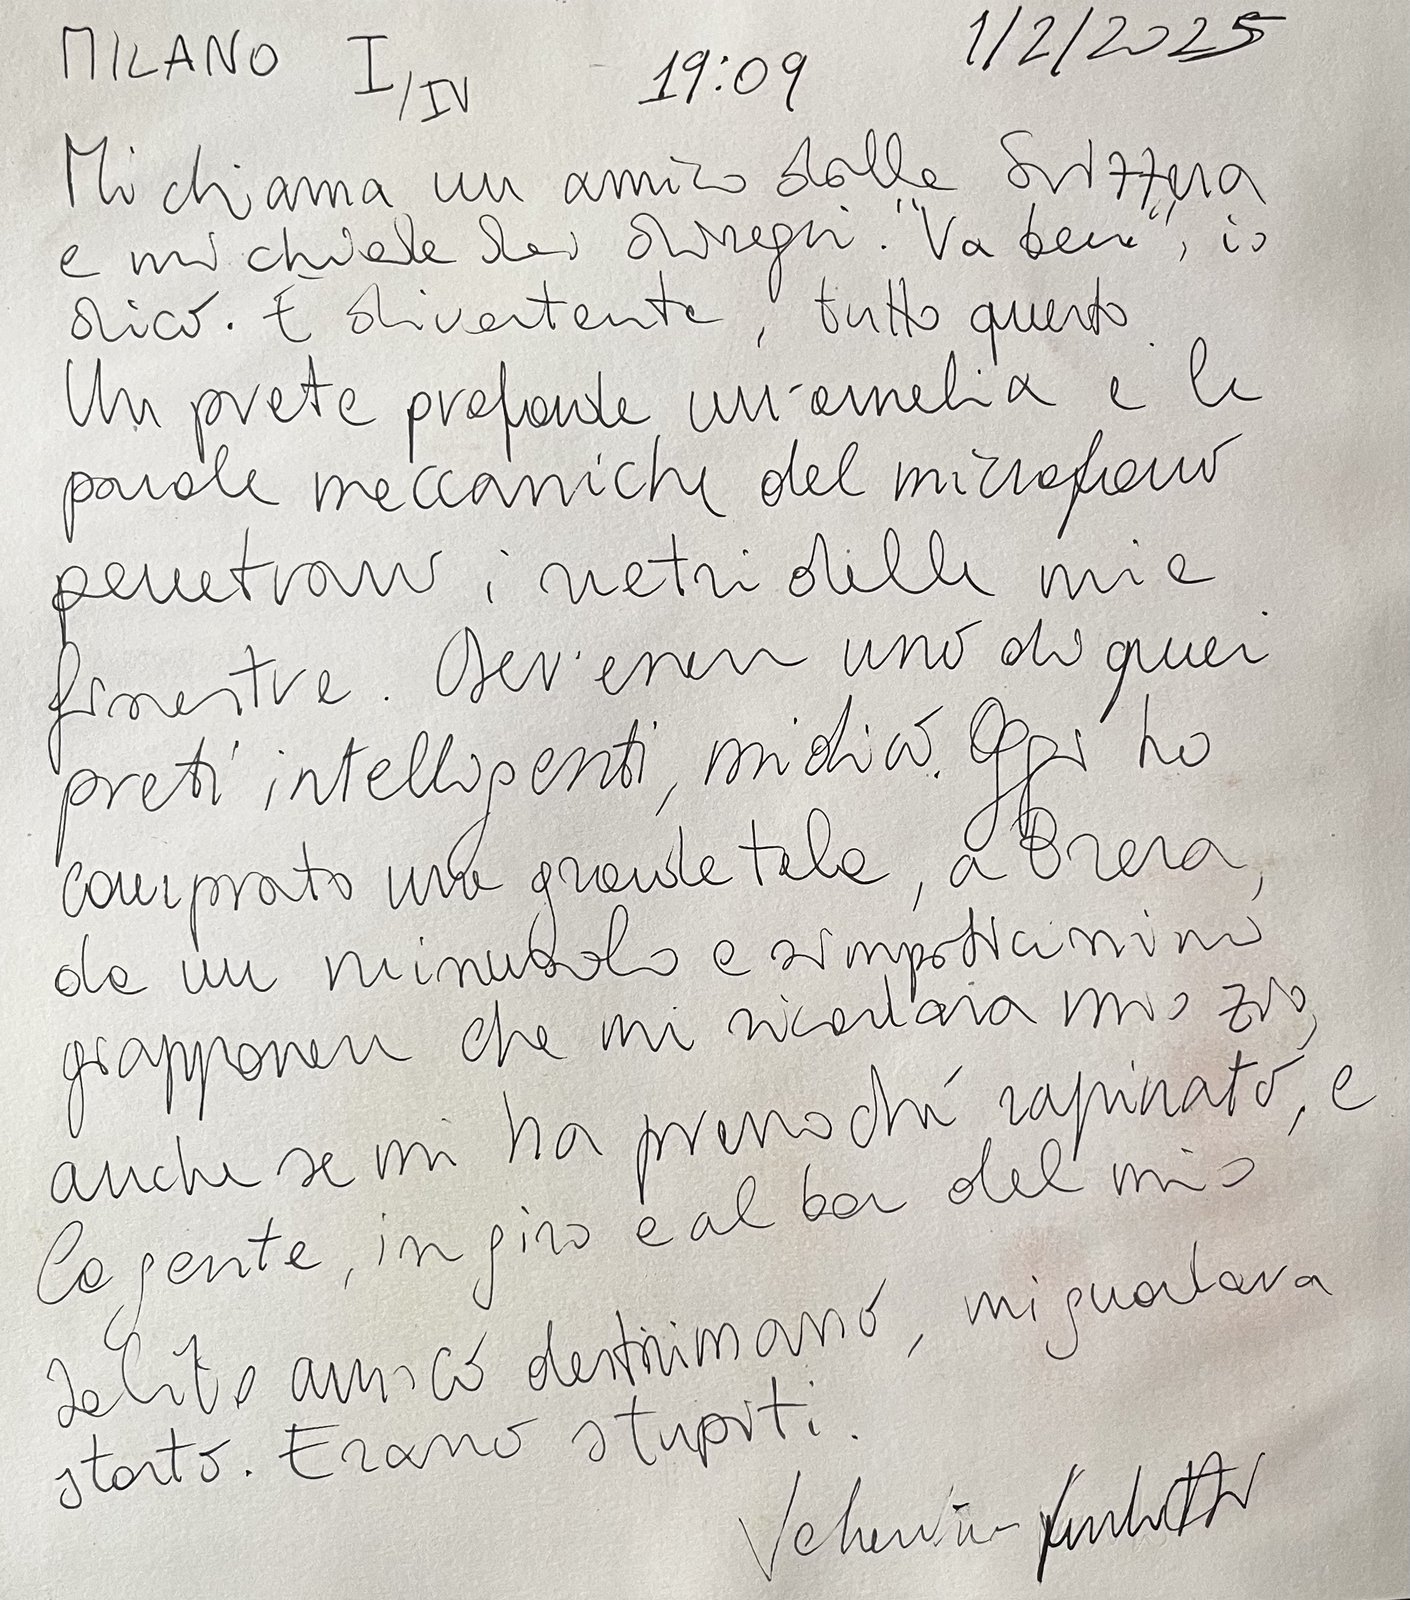 MILANO I/IV 19:09 1/2/2025
Mi chiama un amico dalla Svizzera
e mi chiede dei disegni. "Va bene", io
dico. È divertente, tutto questo.
Un prete profonde un'omelia e le
parole meccaniche del microfono
penetrano i vetri delle mie
finestre. Dev'essere uno di quei
preti intelligenti, mi dico. Oggi ho
comprato una grande tela, a Brera,
da un minuscolo e simpaticissimo
giapponese che mi ricordava mio zio,
anche se mi ha pressoché rapinato, e
la gente, in giro e al bar del mio
solito amico destrimano, mi guardava
storto. Erano stupiti.